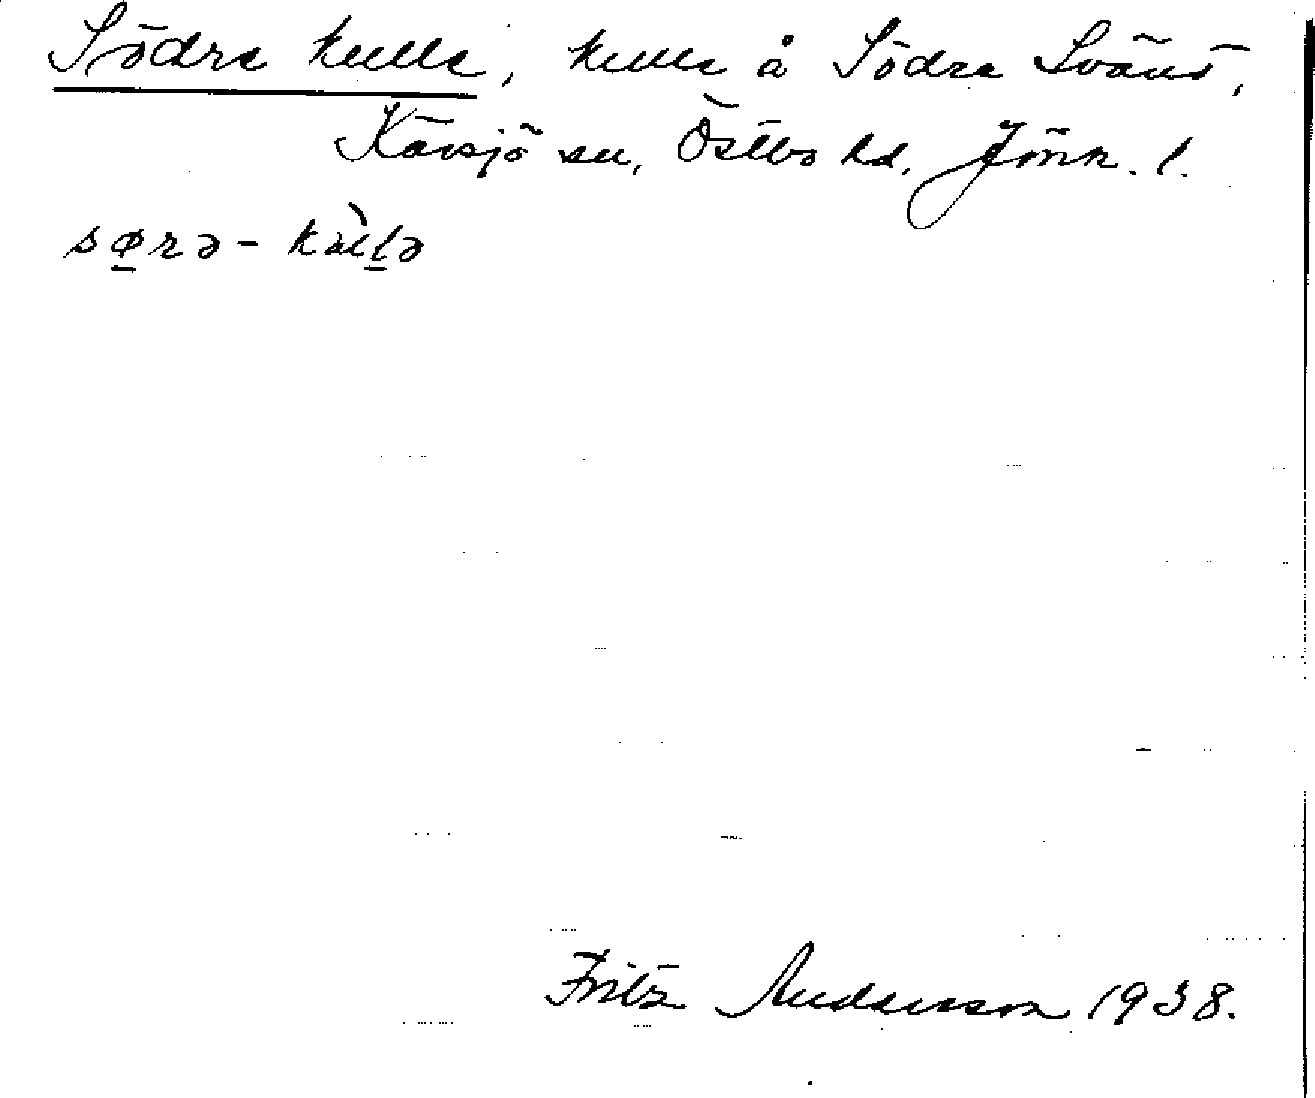 Södra kulle, kulle å Södra Svänö,
Kävsjö sn, Östbo hd, Jönk. l.
sørə - kùllə
Fritz Andersson 1938.